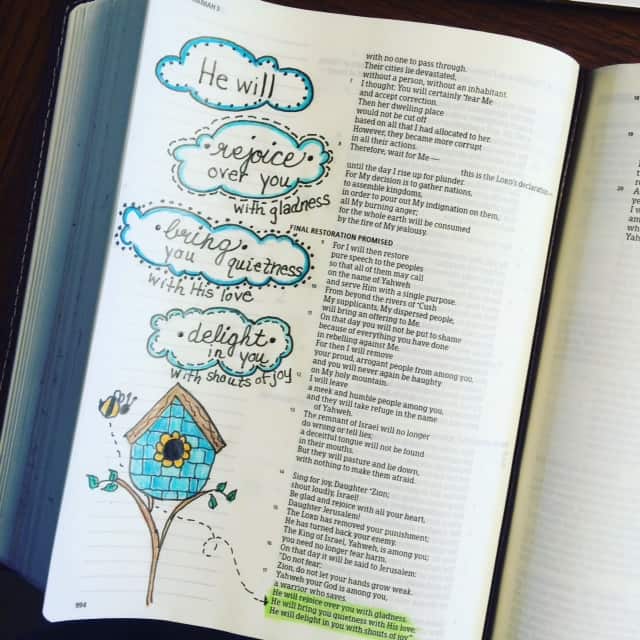 HANIAH 3
He will
rejoice
over you
with gladness
bring
you quietness
with His love
delight
in you
with shouts of joy
994
with no one to pass through.
Their cities lie devastated,
without a person, without an inhabitant.
7 I thought: You will certainly fear Me
and accept correction.
Then her dwelling place
would not be cut off
based on all that I had allocated to her.
However, they became more corrupt
in all their actions.
8 Therefore, wait for Me—
this is the LORD's declaration—
until the day I rise up for plunder.
For My decision is to gather nations,
to assemble kingdoms,
in order to pour out My indignation on them,
all My burning anger;
for the whole earth will be consumed
by the fire of My jealousy.
FINAL RESTORATION PROMISED
9 For I will then restore
pure speech to the peoples
so that all of them may call
on the name of Yahweh
and serve Him with a single purpose.
10 From beyond the rivers of Cush
My supplicants, My dispersed people,
will bring an offering to Me.
11 On that day you will not be put to shame
because of everything you have done
in rebelling against Me.
For then I will remove
your proud, arrogant people from among you,
and you will never again be haughty
on My holy mountain.
12 I will leave
a meek and humble people among you,
and they will take refuge in the name
of Yahweh.
13 The remnant of Israel will no longer
do wrong or tell lies;
a deceitful tongue will not be found
in their mouths.
But they will pasture and lie down,
with nothing to make them afraid.
14 Sing for joy, Daughter Zion;
shout loudly, Israel!
Be glad and rejoice with all your heart,
Daughter Jerusalem!
15 The LORD has removed your punishment;
He has turned back your enemy.
The King of Israel, Yahweh, is among you;
you need no longer fear harm.
16 On that day it will be said to Jerusalem:
"Do not fear;
Zion, do not let your hands grow weak.
17 Yahweh your God is among you,
a warrior who saves.
He will rejoice over you with gladness.
He will bring you quietness with His love.
He will delight in you with shouts of joy."